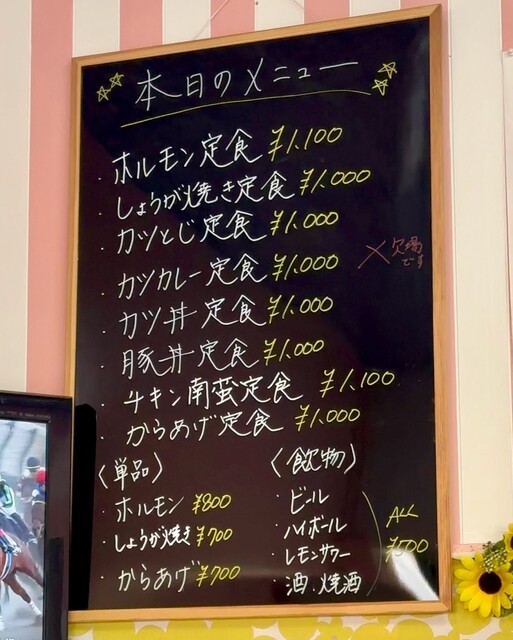 本日のメニュー
・ホルモン定食 ¥1,100
・しょうが焼き定食 ¥1,000
・カツとじ定食 ¥1,000
・カツカレー定食 ¥1,000
×欠場
です
・カツ丼定食 ¥1,000
・豚丼定食 ¥1,000
・チキン南蛮定食 ¥1,100
・からあげ定食 ¥1,000
〈単品〉
・ホルモン ¥800
・しょうが焼き ¥700
・からあげ ¥700
〈飲物〉
・ビール
・ハイボール
・レモンサワー
・酒・焼酒
ALL
¥500